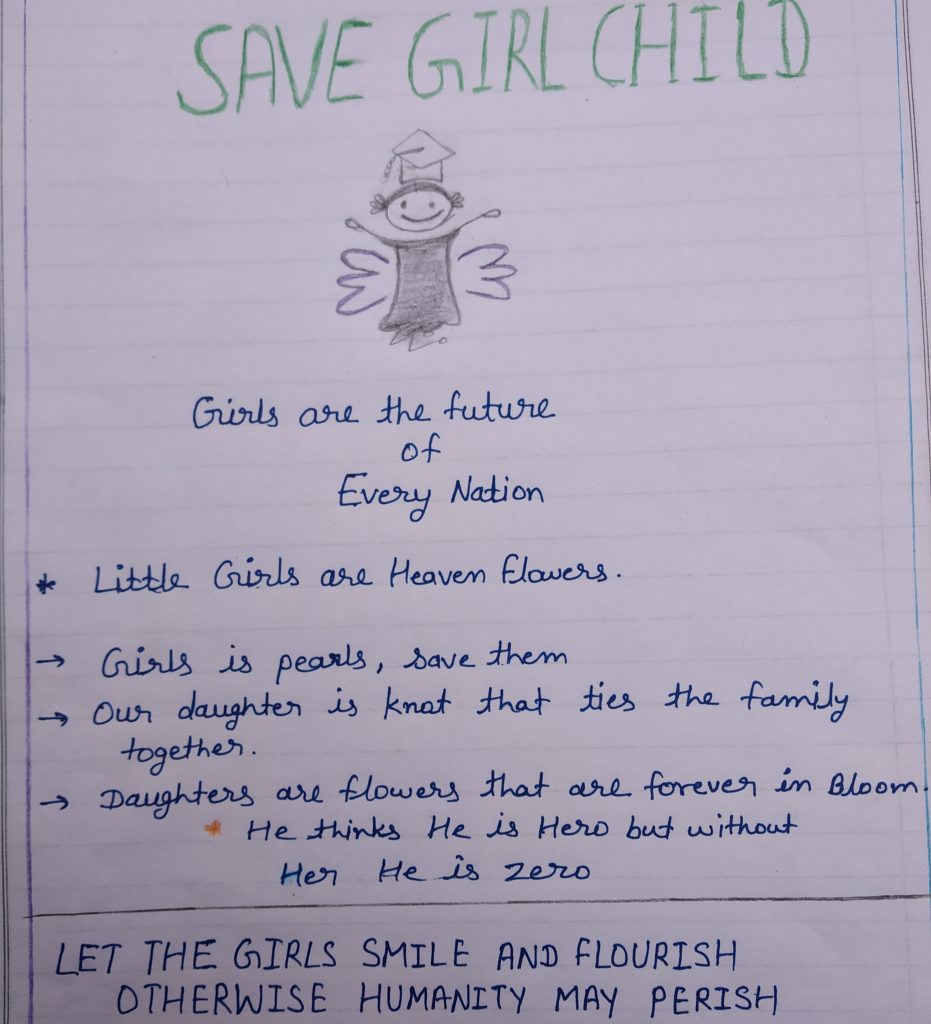 SAVE GIRL CHILD
Girls are the future
of
Every Nation
* Little Girls are Heaven flowers.
→ Girls is pearls, save them
→ Our daughter is knot that ties the family
together.
→ Daughters are flowers that are forever in Bloom.
* He thinks He is Hero but without
Her He is zero
LET THE GIRLS SMILE AND FLOURISH
OTHERWISE HUMANITY MAY PERISH